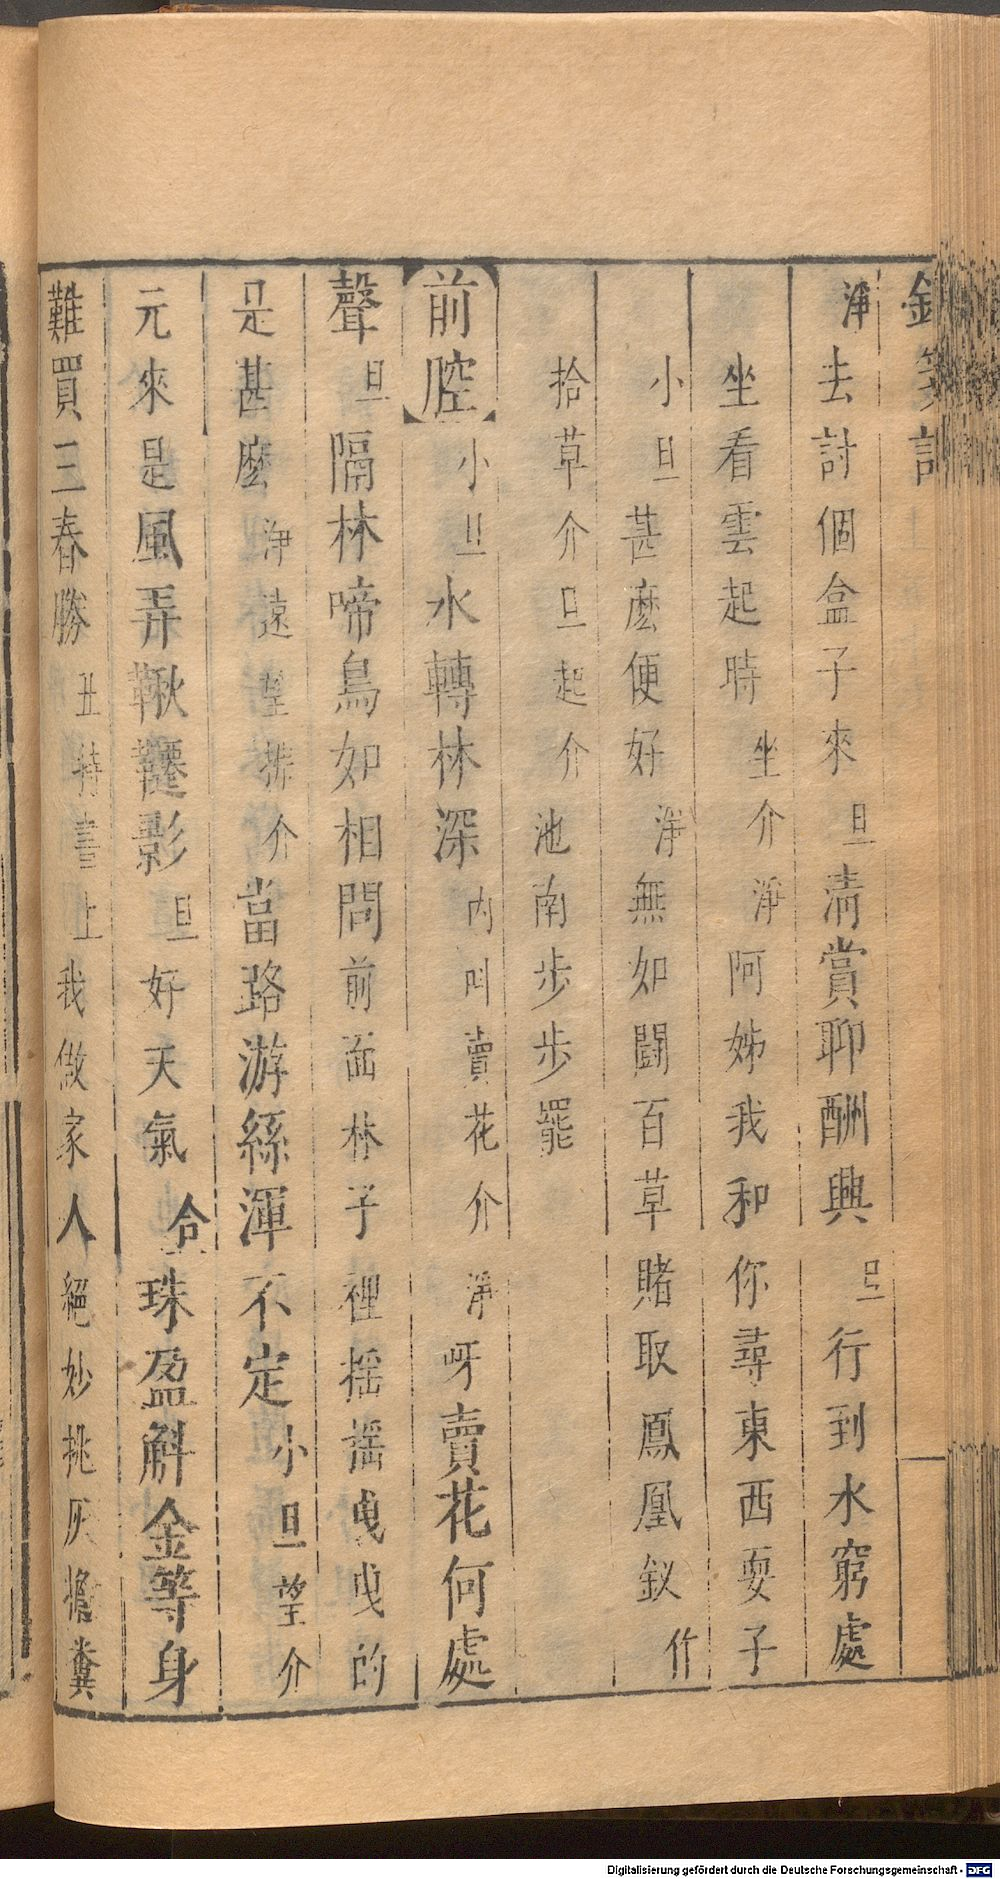 釵箋記
淨去討個盒子來旦清賞聊酬興旦行到水窮處
坐看雲起時坐介淨阿姊我和你尋東西耍子
小旦甚麽便好淨無如鬪百草賭取鳳凰釵作
拾草介旦起介池南步步罷
前腔小旦水轉林深内叫賣花介淨呀賣花何處
聲旦隔林啼鳥如相問前面林子裡搖搖曳曳的
是甚麽淨遠望搽介當路游絲渾不定小旦望介
元來是風弄鞦韆影旦好天氣合珠盈斛金等身
難買三春勝丑持書上我做家人絕妙挑灰擔糞
Digitalisierung gefördert durch die Deutsche Forschungsgemeinschaft - DFG